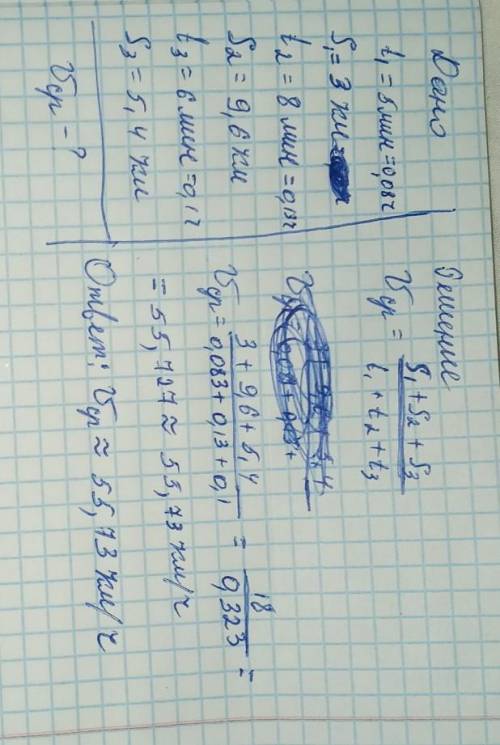 Дано
t₁ = 5 мин = 0,08ч
S₁ = 3 км
t₂ = 8 мин = 0,13ч
S₂ = 9,6 км
t₃ = 6 мин = 0,1ч
S₃ = 5,4 км
Vср - ?
Решение
Vср = (S₁ + S₂ + S₃) / (t₁ + t₂ + t₃)
Vср = (3 + 9,6 + 5,4) / (0,083 + 0,13 + 0,1) = 18 / 0,323 =
= 55,727 ≈ 55,73 км/ч
Ответ: Vср ≈ 55,73 км/ч